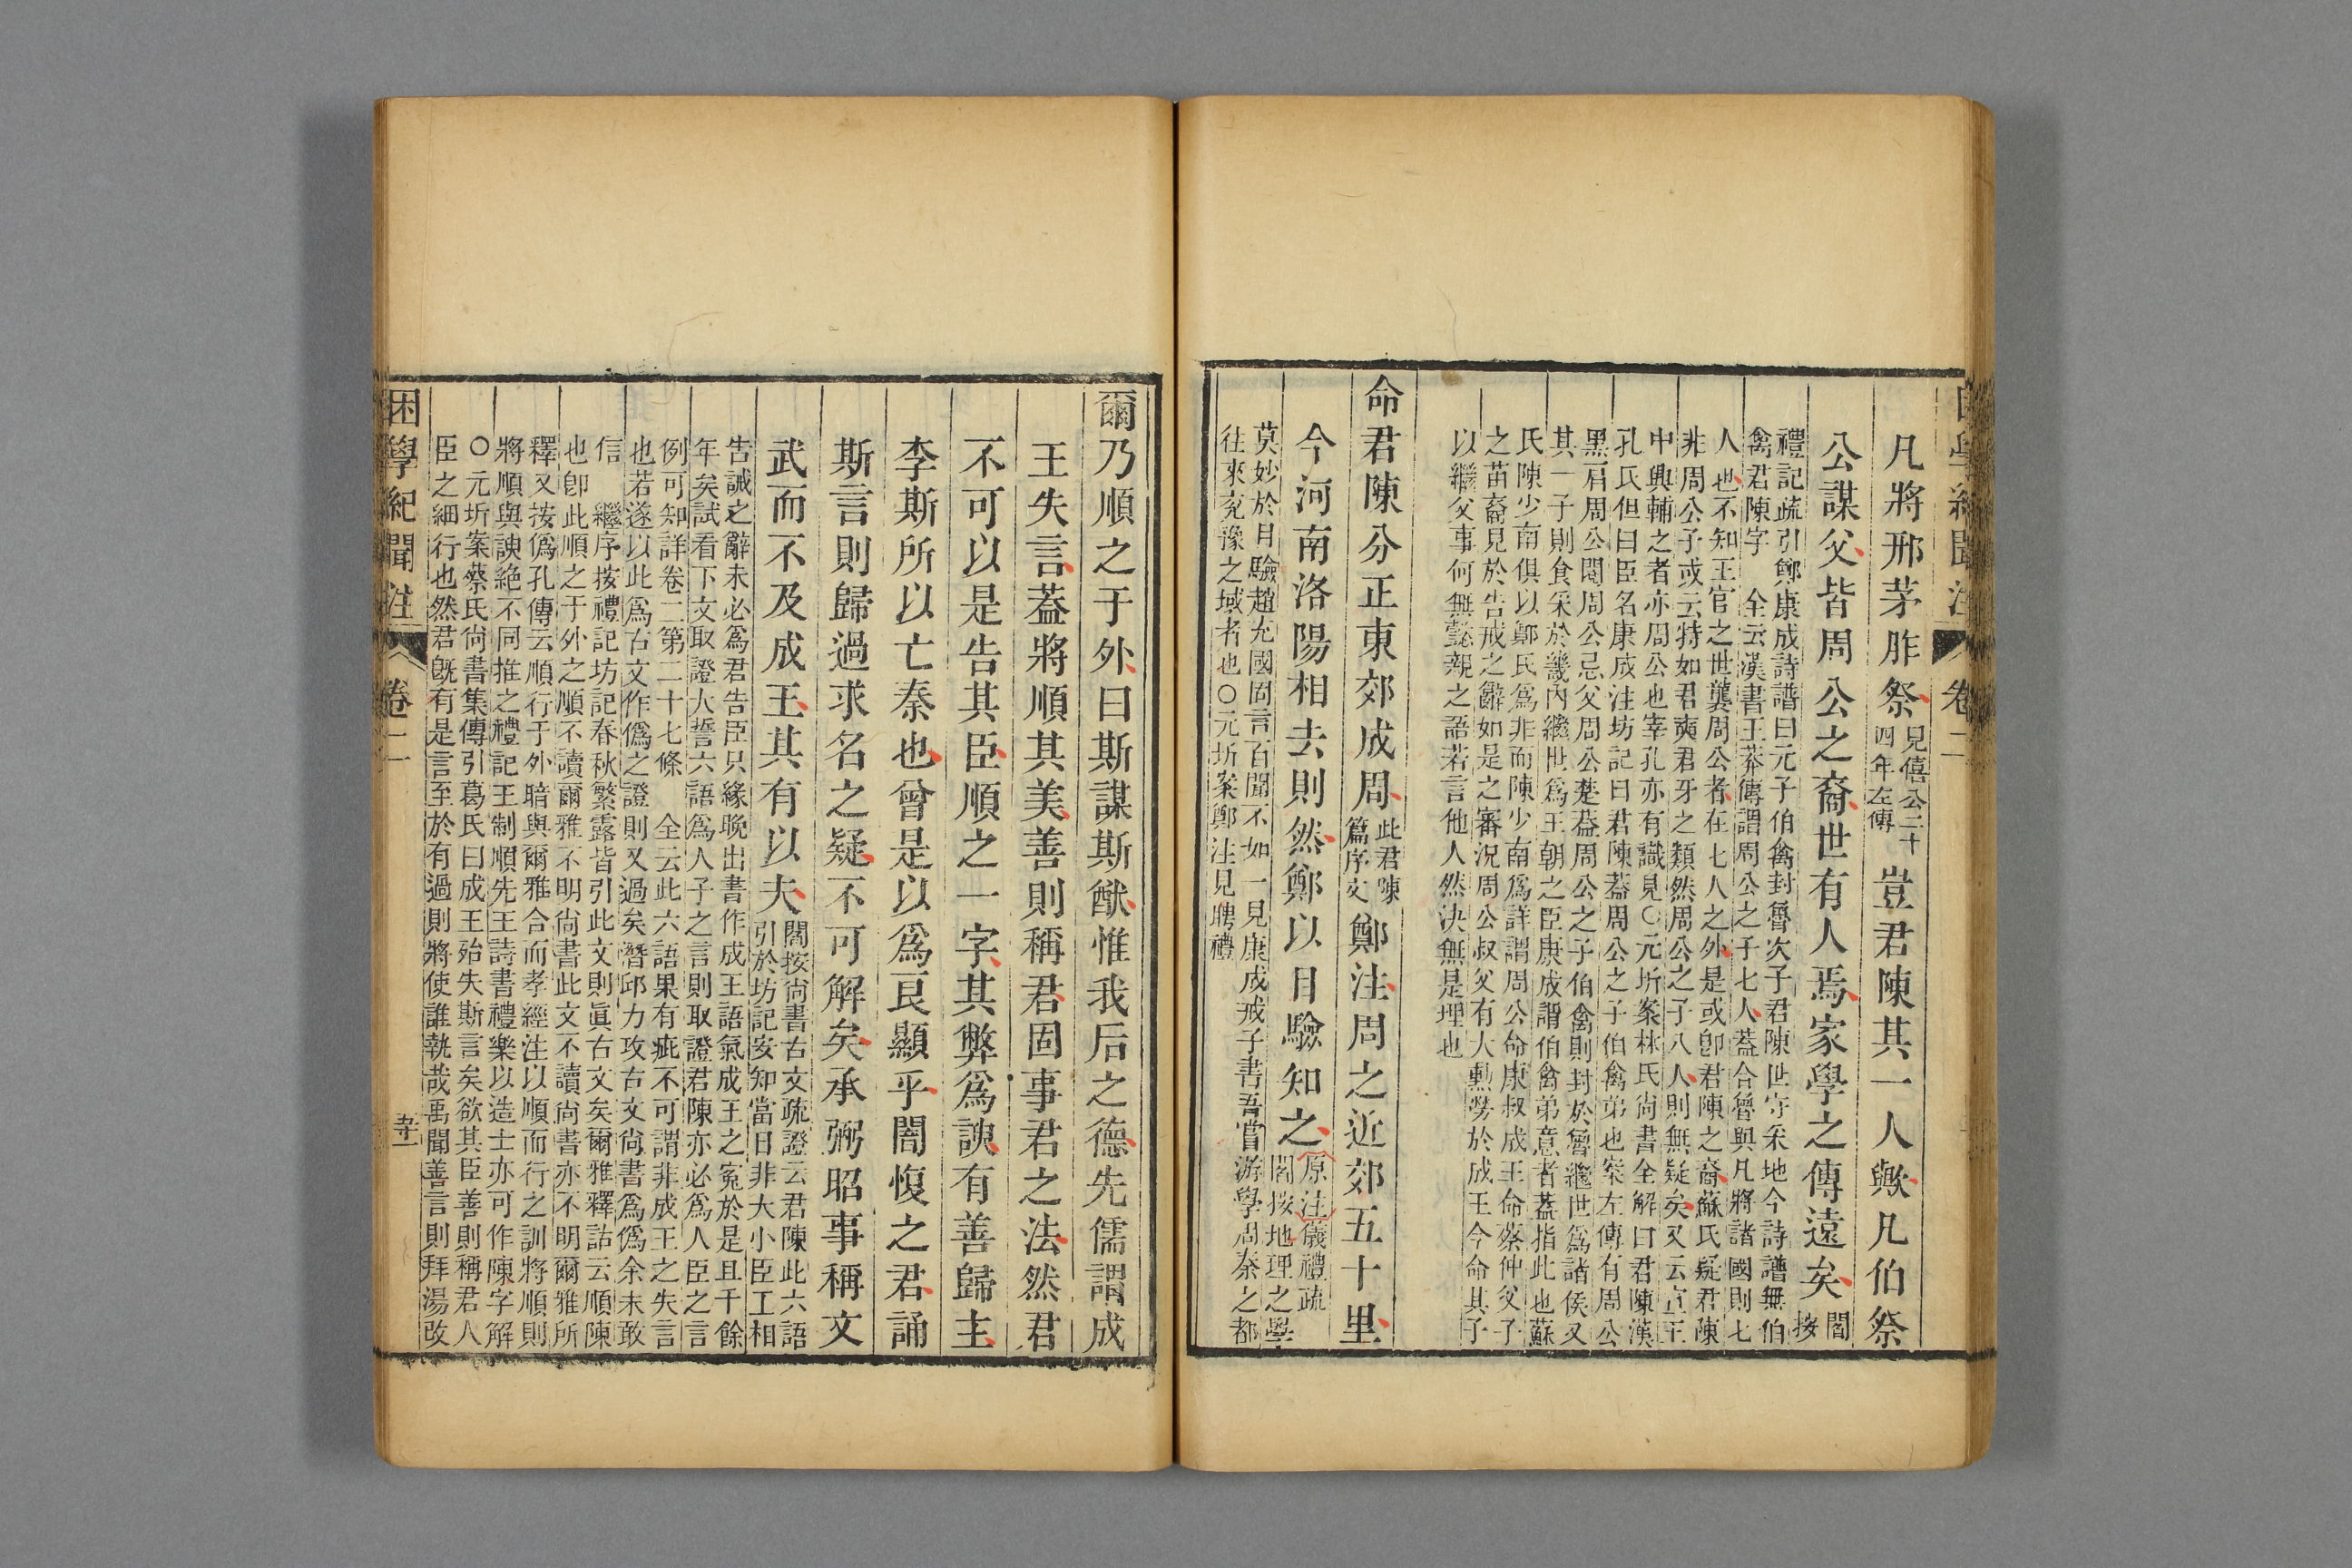 凡將邢茅胙祭見僖公二十四年左傳豈君陳其一人歟凡伯祭
公謀父皆周公之裔世有人焉家學之傳遠矣閻按
禮記疏引鄭康成詩譜曰元子伯禽封魯次子君陳世守采地今詩譜無伯
禽君陳字 全云漢書王莽傳謂周公之子七人蓋合魯與凡將諸國則七
人也不知王官之世襲周公者在七人之外是或卽君陳之裔蘇氏疑君陳
非周公子或云特如君奭君牙之類然周公之子八人則無疑矣又云宣王
中興輔之者亦周公也宰孔亦有識見〇元圻案林氏尙書全解曰君陳漢
孔氏但曰臣名康成注坊記曰君陳蓋周公之子伯禽弟也案左傳有周公
黑肩周公閱周公忌父周公楚蓋周公之子伯禽則封於魯繼世爲諸侯又
其一子則食采於畿內繼世爲王朝之臣康成謂伯禽弟意者蓋指此也蘇
氏陳少南俱以鄭氏爲非而陳少南爲詳謂周公命康叔成王命蔡仲父子
之苗裔見於告戒之辭如是之審況周公叔父有大勳勞於成王今命其子
以繼父事何無懿親之語若言他人然決無是理也
命君陳分正東郊成周此君陳篇序文鄭注周之近郊五十里
今河南洛陽相去則然鄭以目驗知之原注儀禮疏閻按地理之學
莫妙於目驗趙充國固言百聞不如一見康成戒子書吾嘗游學周秦之都
往來兗豫之域者也〇元圻案鄭注見聘禮
爾乃順之于外曰斯謀斯猷惟我后之德先儒謂成
王失言蓋將順其美善則稱君固事君之法然君
不可以是告其臣順之一字其弊爲諛有善歸主
李斯所以亡秦也曾是以爲良顯乎闇愎之君誦
斯言則歸過求名之疑不可解矣承弼昭事稱文
武而不及成王其有以夫閻按尙書古文疏證云君陳此六語引於坊記安知當日非大小臣工相
告誡之辭未必爲君告臣只緣晚出書作成王語氣成王之寃於是且千餘
年矣試看下文取證大誓六語爲人子之言則取證君陳亦必爲人臣之言
例可知詳卷二第二十七條 全云此六語果有疵不可謂非成王之失言
也若遂以此爲古文作僞之證則又過矣潛邱力攻古文尙書爲僞余未敢
信 繼序按禮記坊記春秋繁露皆引此文則眞古文矣爾雅釋詁云順陳
也卽此順之于外之順不讀爾雅不明尙書此文不讀尙書亦不明爾雅所
釋又按僞孔傳云順行于外暗與爾雅合而孝經注以順而行之訓將順則
將順與諛絶不同推之禮記王制順先王詩書禮樂以造士亦可作陳字解
〇元圻案蔡氏尙書集傳引葛氏曰成王殆失斯言矣欲其臣善則稱君人
臣之細行也然君旣有是言至於有過則將使誰執哉禹聞善言則拜湯改
困學紀聞注 卷二